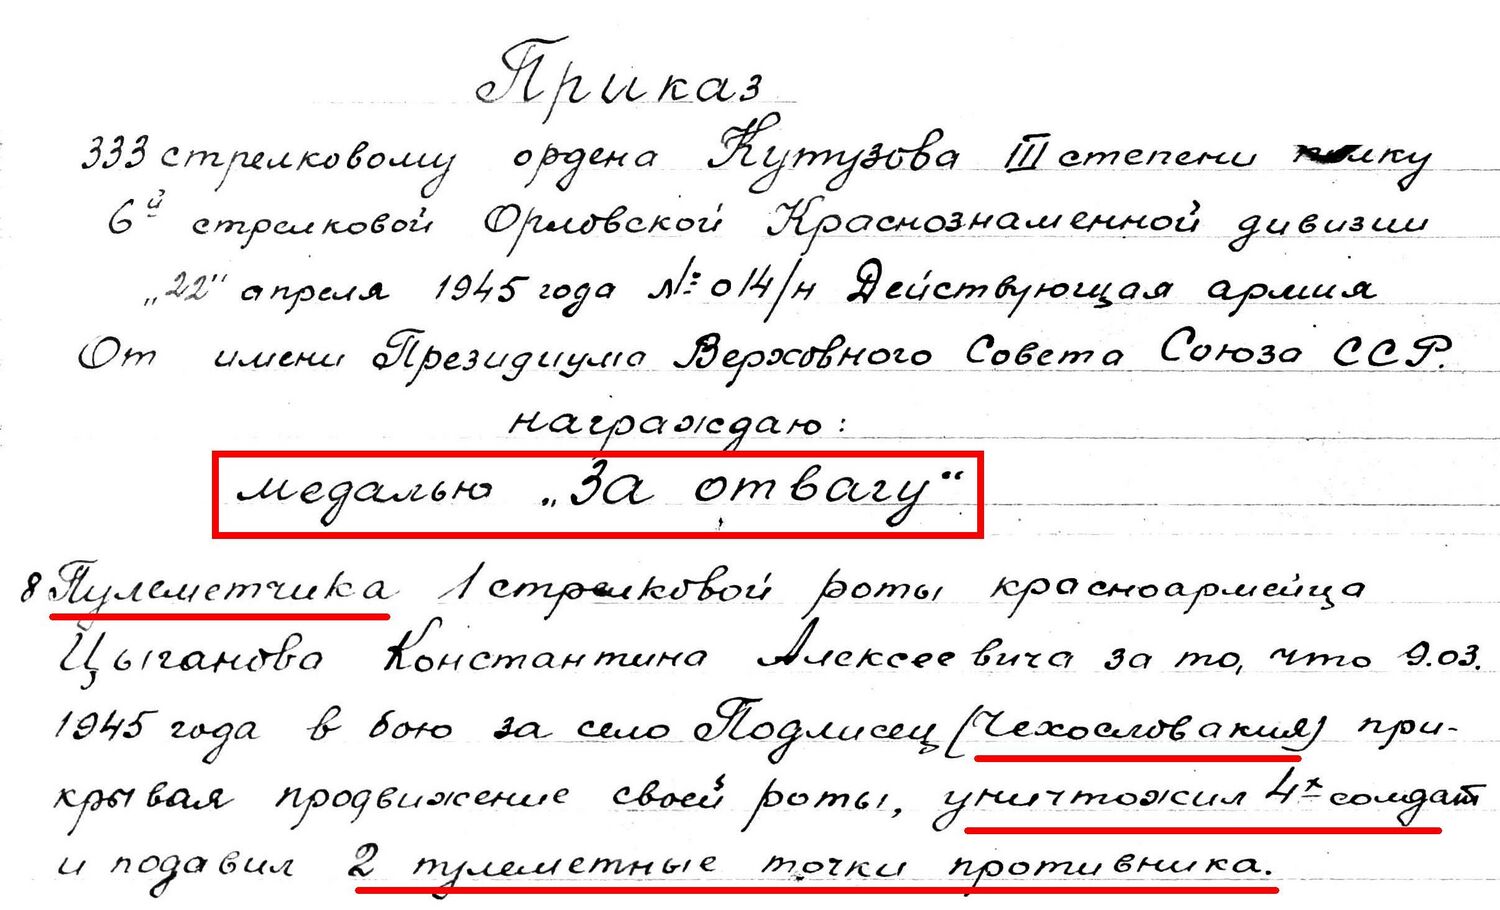 Приказ
333 стрелковому ордена Кутузова III степени полку
6й стрелковой Орловской Краснознаменной дивизии
„22" апреля 1945 года №: 014/н Действующая армия
От имени Президиума Верховного Совета Союза ССР.
награждаю:
медалью „За отвагу"
8 Пулеметчика 1 стрелковой роты красноармейца
Цыганова Константина Алексеевича за то, что 9.03.
1945 года в бою за село Подлисец (Чехословакия) при-
крывая продвижение своей роты, уничтожил 4х солдат
и подавил 2 пулеметные точки противника.